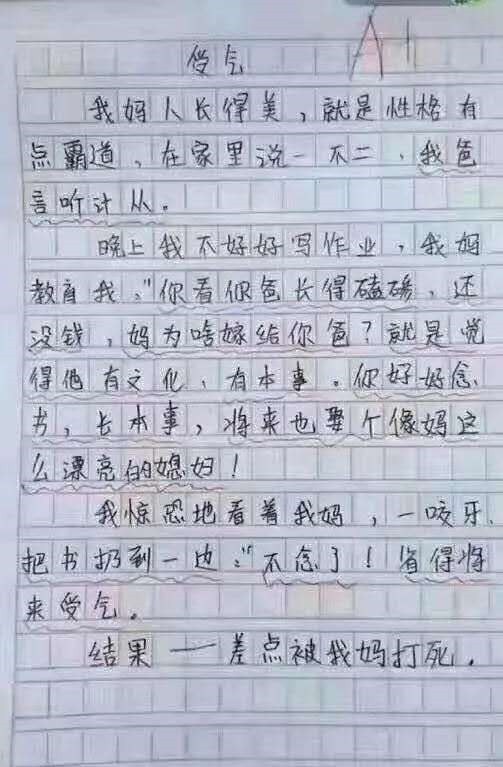 A+
受气
我妈人长得美，就是性格有
点霸道，在家里说一不二，我爸
言听计从。
晚上我不好好写作业，我妈
教育我："你看你爸长得磕碜，还
没钱，妈为啥嫁给你爸？就是觉
得他有文化，有本事。你好好念
书，长本事，将来也娶个像妈这
么漂亮的媳妇！
我惊恐地看着我妈，一咬牙，
把书扔到一边："不念了！省得将
来受气。
结果——差点被我妈打死。